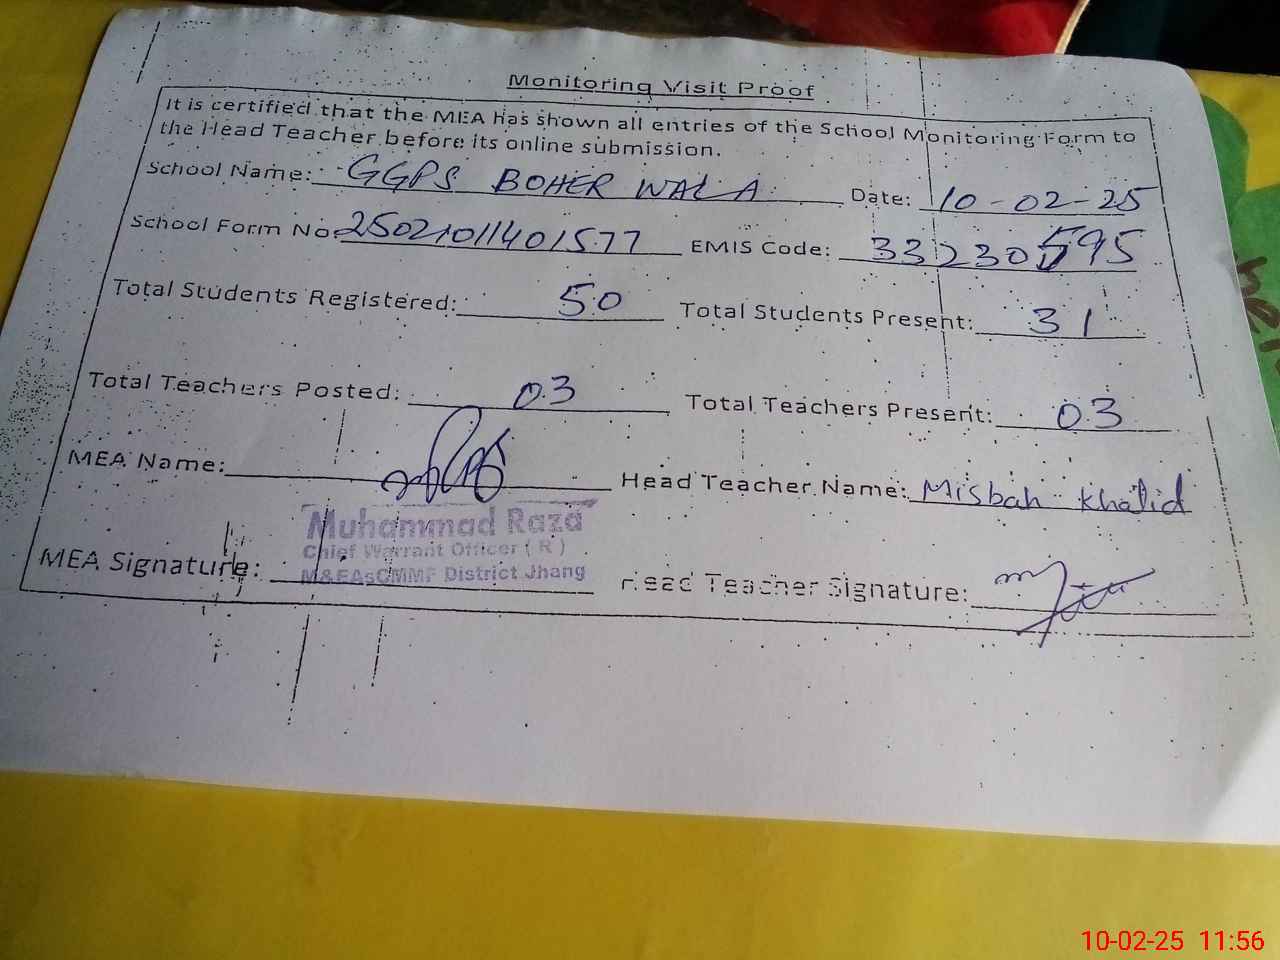 Monitoring Visit Proof
It is certified that the MEA has shown all entries of the School Monitoring Form to
the Head Teacher before its online submission.
School Name: GGPS BOHER WALA Date: 10-02-25
School Form No: 25021011401577 EMIS Code: 33230595
Total Students Registered: 50 Total Students Present: 31
Total Teachers Posted: 03 Total Teachers Present: 03
MEA Name: Head Teacher Name: Misbah Khalid
Muhammad Raza
Chief Warrant Officer (R)
M&EAsCMMF District Jhang
MEA Signature: Head Teacher Signature:
10-02-25 11:56